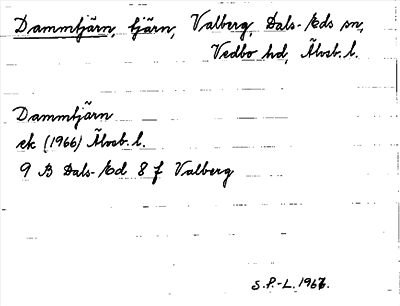 Dammtjärn, tjärn, Valberg, Dals-Eds sn,
Vedbo hd, Älvsb. l.
Dammtjärn
ek (1966) Älvsb. l.
9 B Dals-Ed 8 f Valberg
S.P.-L. 1967.